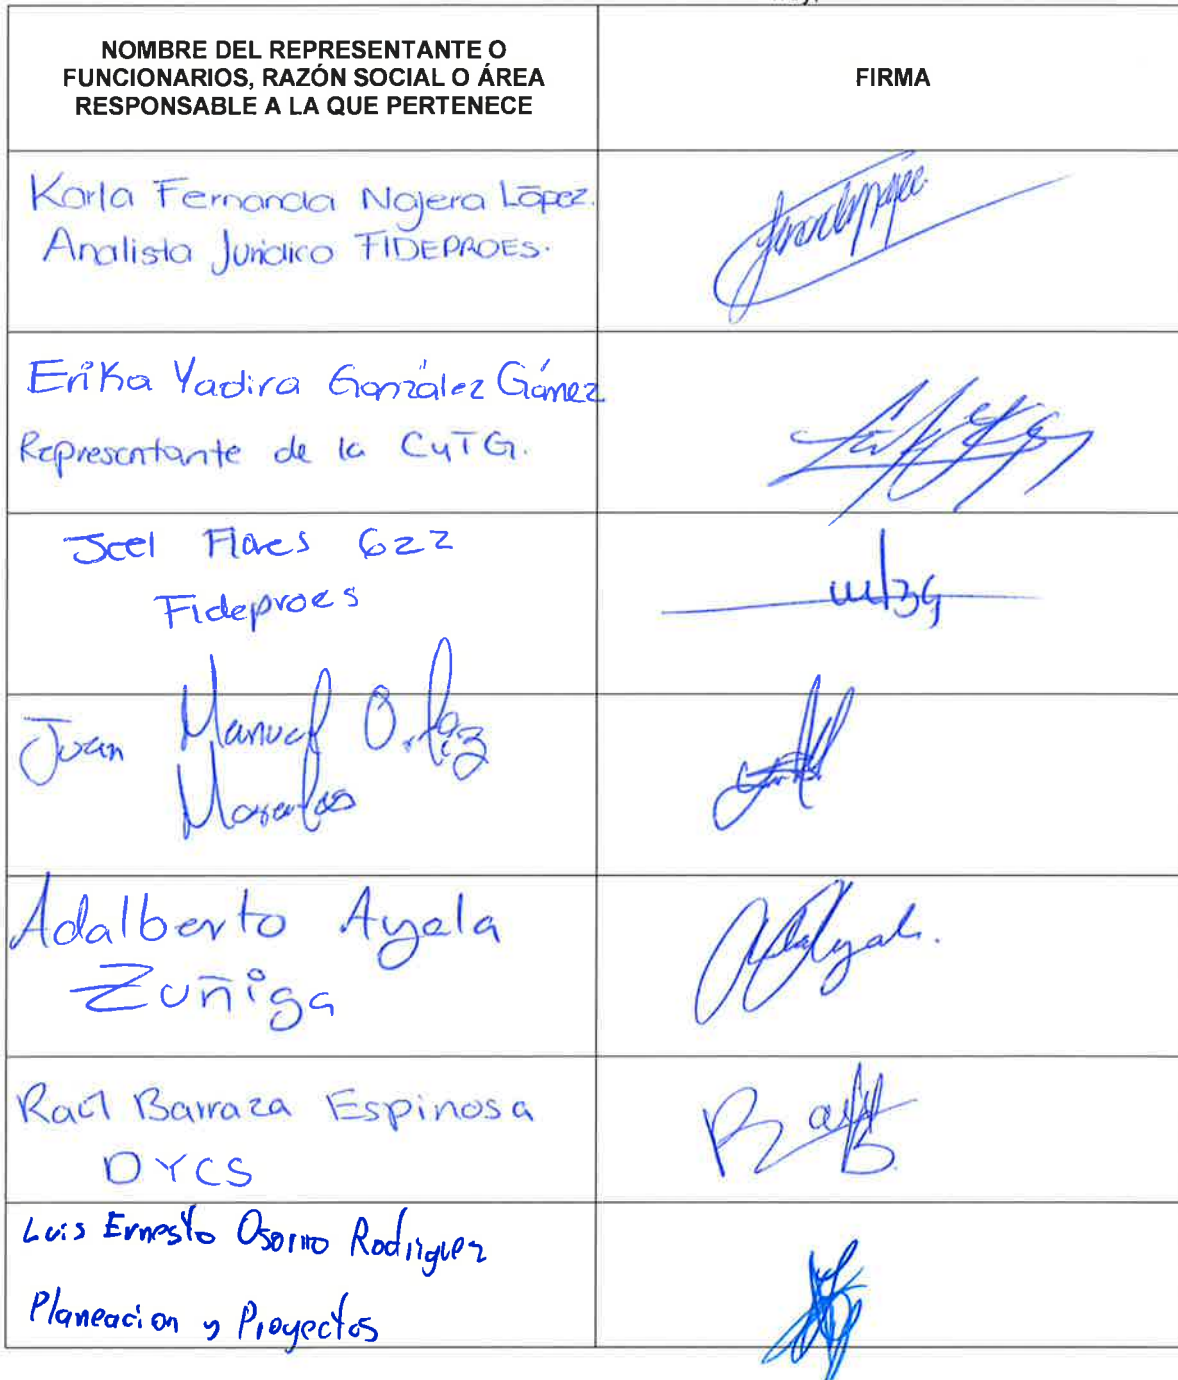 NOMBRE DEL REPRESENTANTE O
FUNCIONARIOS, RAZÓN SOCIAL O ÁREA
RESPONSABLE A LA QUE PERTENECE
FIRMA
Karla Fernanda Najera López.
Analista Jurídico FIDEPROES.
Erika Yadira González Gámez
Representante de la CyTG.
Joel Flores 622
Fideproes
Juan Manuel Ortiz
Morales
Adalberto Ayala
Zuñiga
Raúl Barraza Espinosa
DYCS
Luis Ernesto Osorno Rodriguez
Planeacion y Proyectos